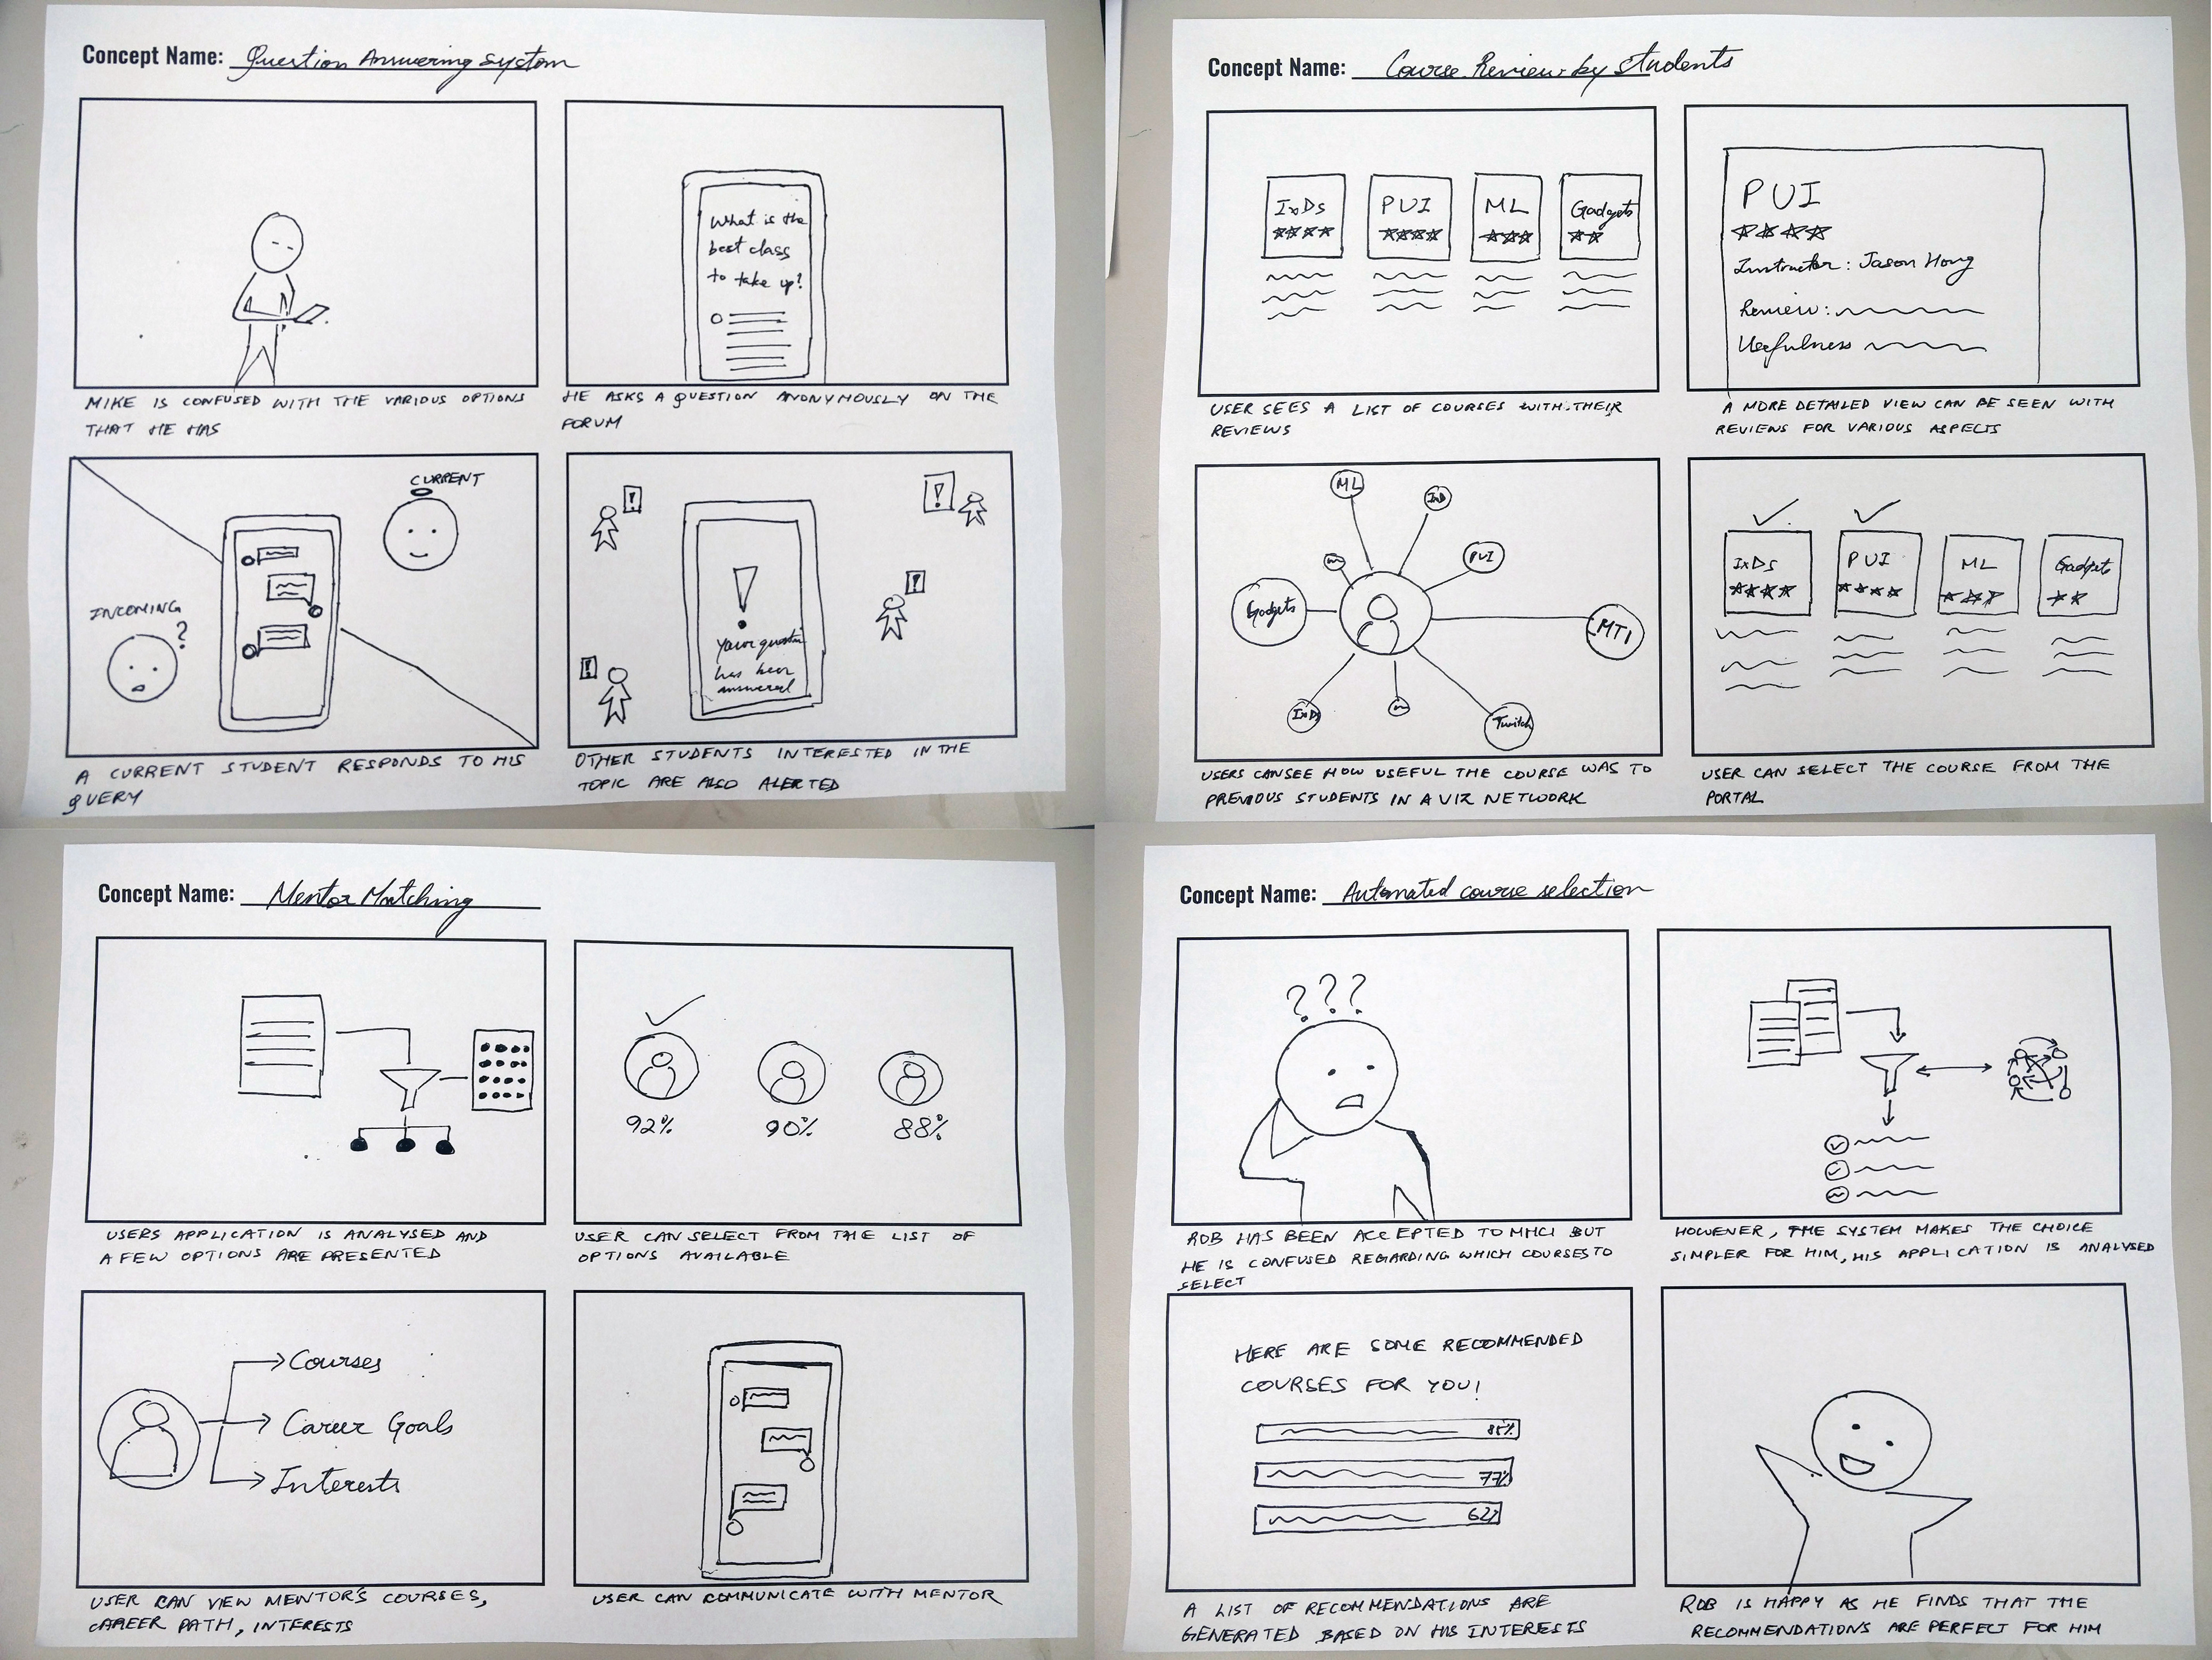 Concept Name: Question Answering System
What is the
best class
to take up?
MIKE IS CONFUSED WITH THE VARIOUS OPTIONS
THAT HE HAS
HE ASKS A QUESTION ANONYMOUSLY ON THE
FORUM
CURRENT
INCOMING
?
!
!
!
!
!
Your question
has been
answered
A CURRENT STUDENT RESPONDS TO HIS
QUERY
OTHER STUDENTS INTERESTED IN THE
TOPIC ARE ALSO ALERTED
Concept Name: Course Review by students
IxDs
PUI
ML
Gadgets
PUI
Instructor: Jason Hong
Review:
Usefulness
USER SEES A LIST OF COURSES WITH THEIR
REVIEWS
A MORE DETAILED VIEW CAN BE SEEN WITH
REVIEWS FOR VARIOUS ASPECTS
ML
IxD
PUI
Gadgets
MTI
IxDs
Twitch
IxDs
PUI
ML
Gadgets
USERS CAN SEE HOW USEFUL THE COURSE WAS TO
PREVIOUS STUDENTS IN A VIZ NETWORK
USER CAN SELECT THE COURSE FROM THE
PORTAL
Concept Name: Mentor Matching
92%
90%
88%
USERS APPLICATION IS ANALYSED AND
A FEW OPTIONS ARE PRESENTED
USER CAN SELECT FROM THE LIST OF
OPTIONS AVAILABLE
Courses
Career Goals
Interests
USER CAN VIEW MENTOR'S COURSES,
CAREER PATH, INTERESTS
USER CAN COMMUNICATE WITH MENTOR
Concept Name: Automated course selection
???
ROB HAS BEEN ACCEPTED TO MHCI BUT
HE IS CONFUSED REGARDING WHICH COURSES TO
SELECT
HOWEVER, THE SYSTEM MAKES THE CHOICE
SIMPLER FOR HIM, HIS APPLICATION IS ANALYSED
HERE ARE SOME RECOMMENDED
COURSES FOR YOU!
85%
77%
62%
A LIST OF RECOMMENDATIONS ARE
GENERATED BASED ON HIS INTERESTS
ROB IS HAPPY AS HE FINDS THAT THE
RECOMMENDATIONS ARE PERFECT FOR HIM